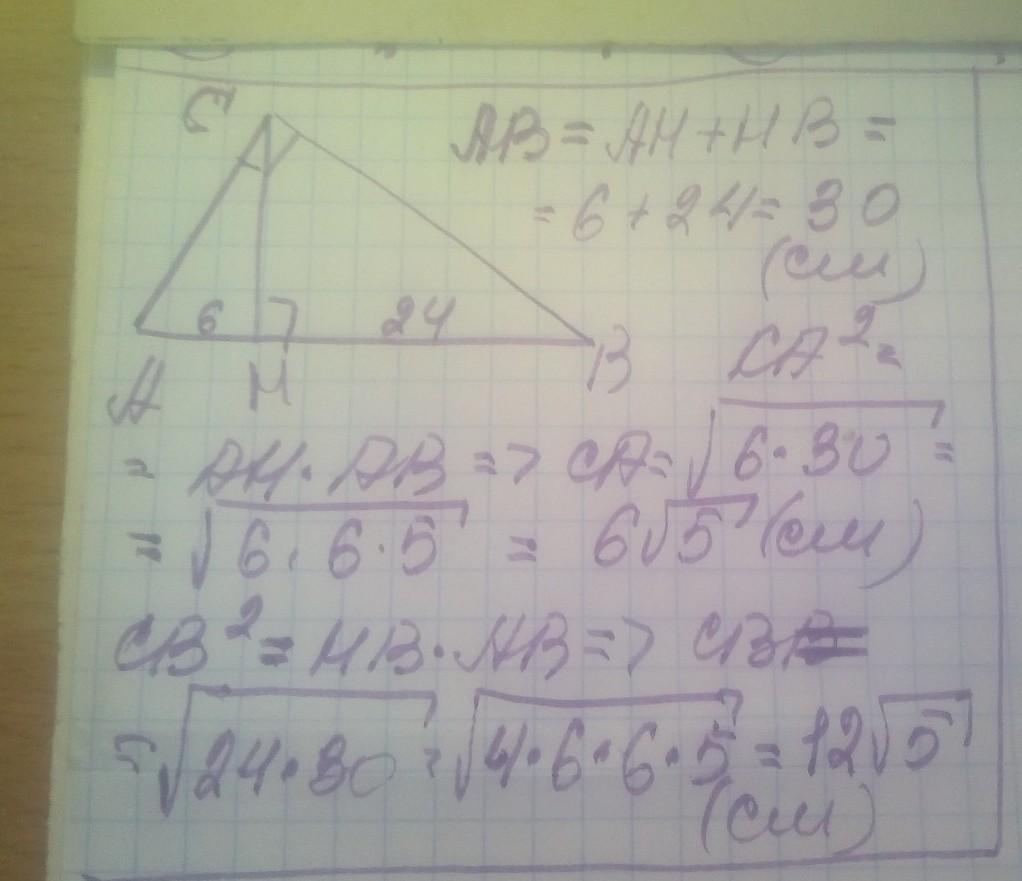 C
AB = AH + HB =
= 6 + 24 = 30
(см)
6
24
A
H
B
CA² =
= AH · AB => CA = √6 · 30 =
= √6 · 6 · 5 = 6√5 (см)
CB² = HB · AB => CB
= √24 · 30 = √4 · 6 · 6 · 5 = 12√5
(см)